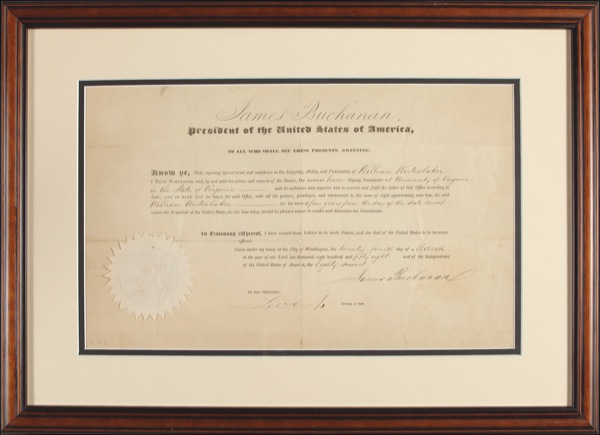 James Buchanan,
President of the United States of America,
TO ALL WHO SHALL SEE THESE PRESENTS, GREETING:
Know ye, That, reposing special trust and confidence in the Integrity, Ability, and Punctuality of William Wertenbaker
I Have Nominated, and, by and with the advice and consent of the Senate, do Appoint him Deputy Postmaster at University of Virginia
in the State of Virginia and do authorize and empower him to execute and fulfil the duties of that Office according to
Law; and to have and to hold the said Office, with all the powers, privileges, and emoluments to the same of right appertaining unto him, the said
William Wertenbaker for the term of four years from the day of the date hereof
unless the President of the United States for the time being should be pleased sooner to revoke and determine his Commission.
In Testimony Whereof, I have caused these Letters to be made Patent, and the Seal of the United States to be hereunto
affixed.
Given under my hand, at the City of Washington, the twenty fourth day of March
in the year of our Lord one thousand eight hundred and fifty eight and of the Independence
of the United States of America, the Eighty second
James Buchanan
BY THE PRESIDENT:
Secretary of State.